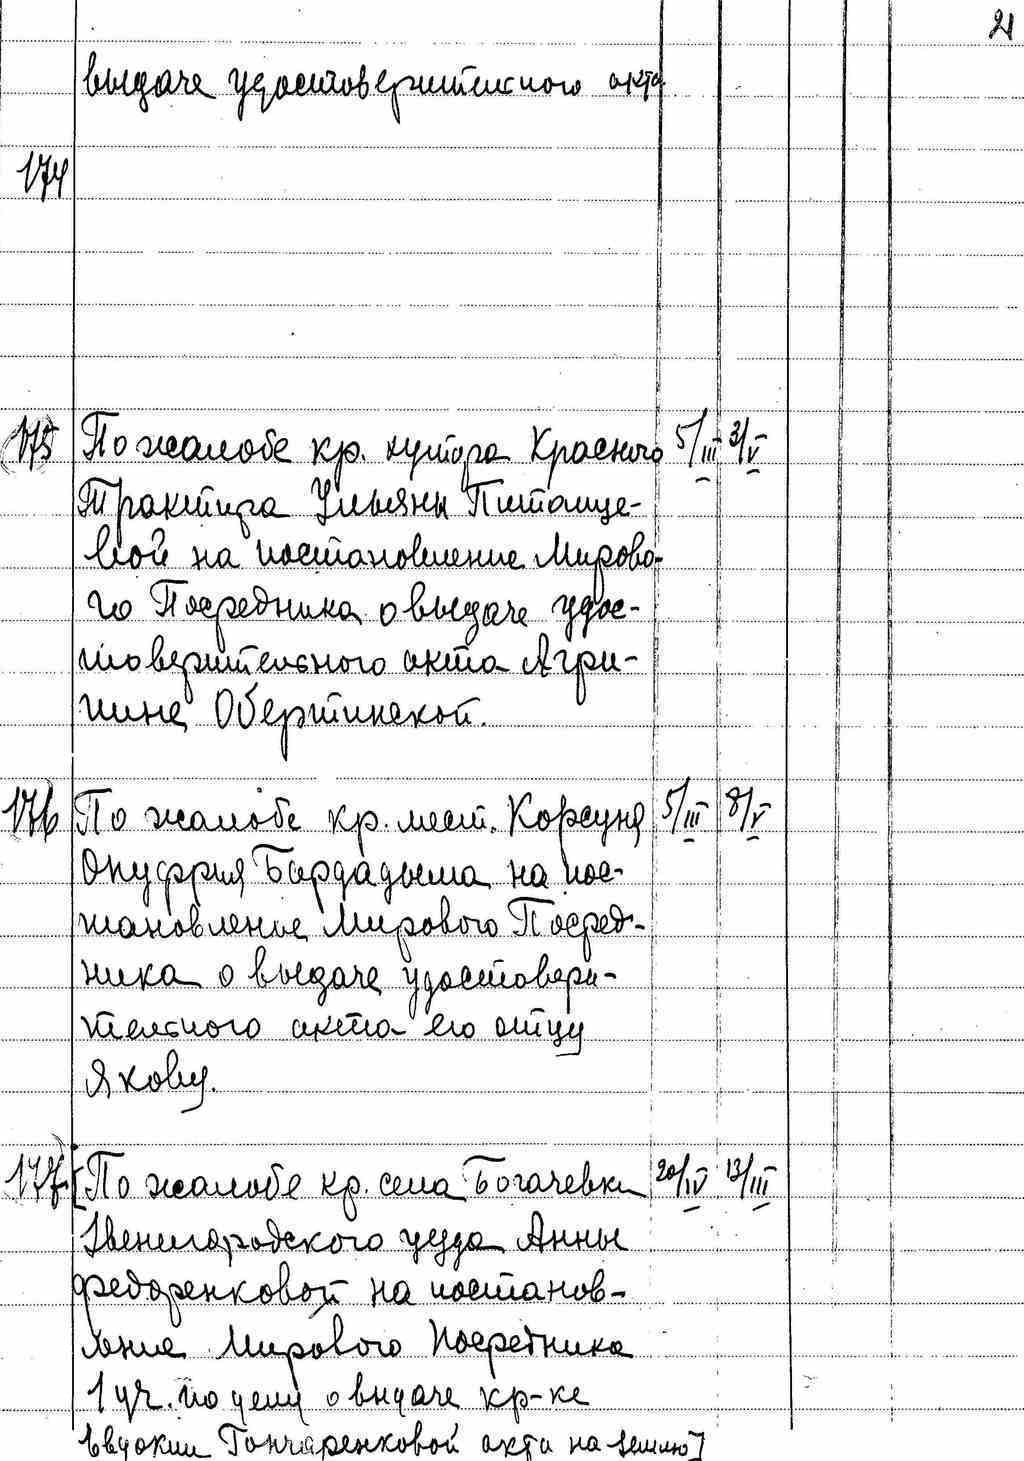 21
выдаче удостоверительного акта.
174
175 По жалобе кр. хутора Красного 5/III 3/V
Трактира Ульяны Питомце-
вой на постановление Мирово-
го Посредника о выдаче удос-
товерительного акта Агри-
пине Обертинской.
176 По жалобе кр. мест. Корсуня 5/III 8/V
Онуфрия Бардадыма на пос-
тановление Мирового Посред-
ника о выдаче удостовери-
тельного акта его отцу
Якову.
177. [По жалобе кр. села Богачевки 20/IV 13/III
Звенигородского уезда Анны
Федоренковой на постанов-
ление Мирового Посредника
1 уч. по делу о выдаче кр-ке
Евдокии Гончаренковой акта на землю]